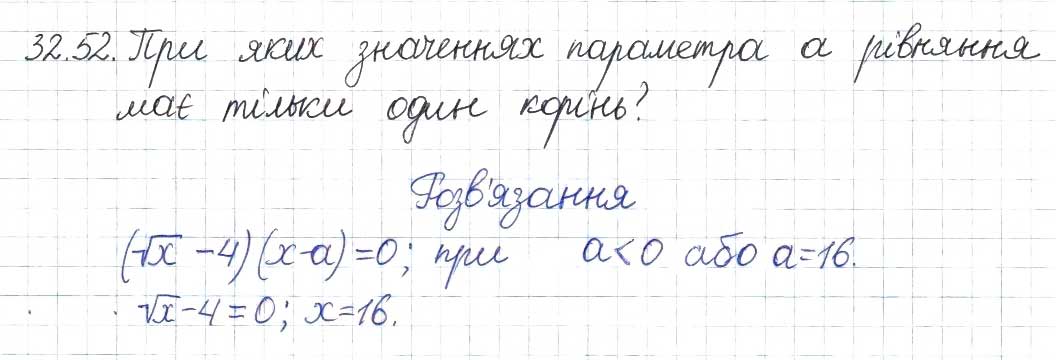 32.52. При яких значеннях параметра a рівняння
має тільки один корінь?
Розв'язання
(√x - 4)(x - a) = 0; при a < 0 або a = 16.
√x - 4 = 0; x = 16.